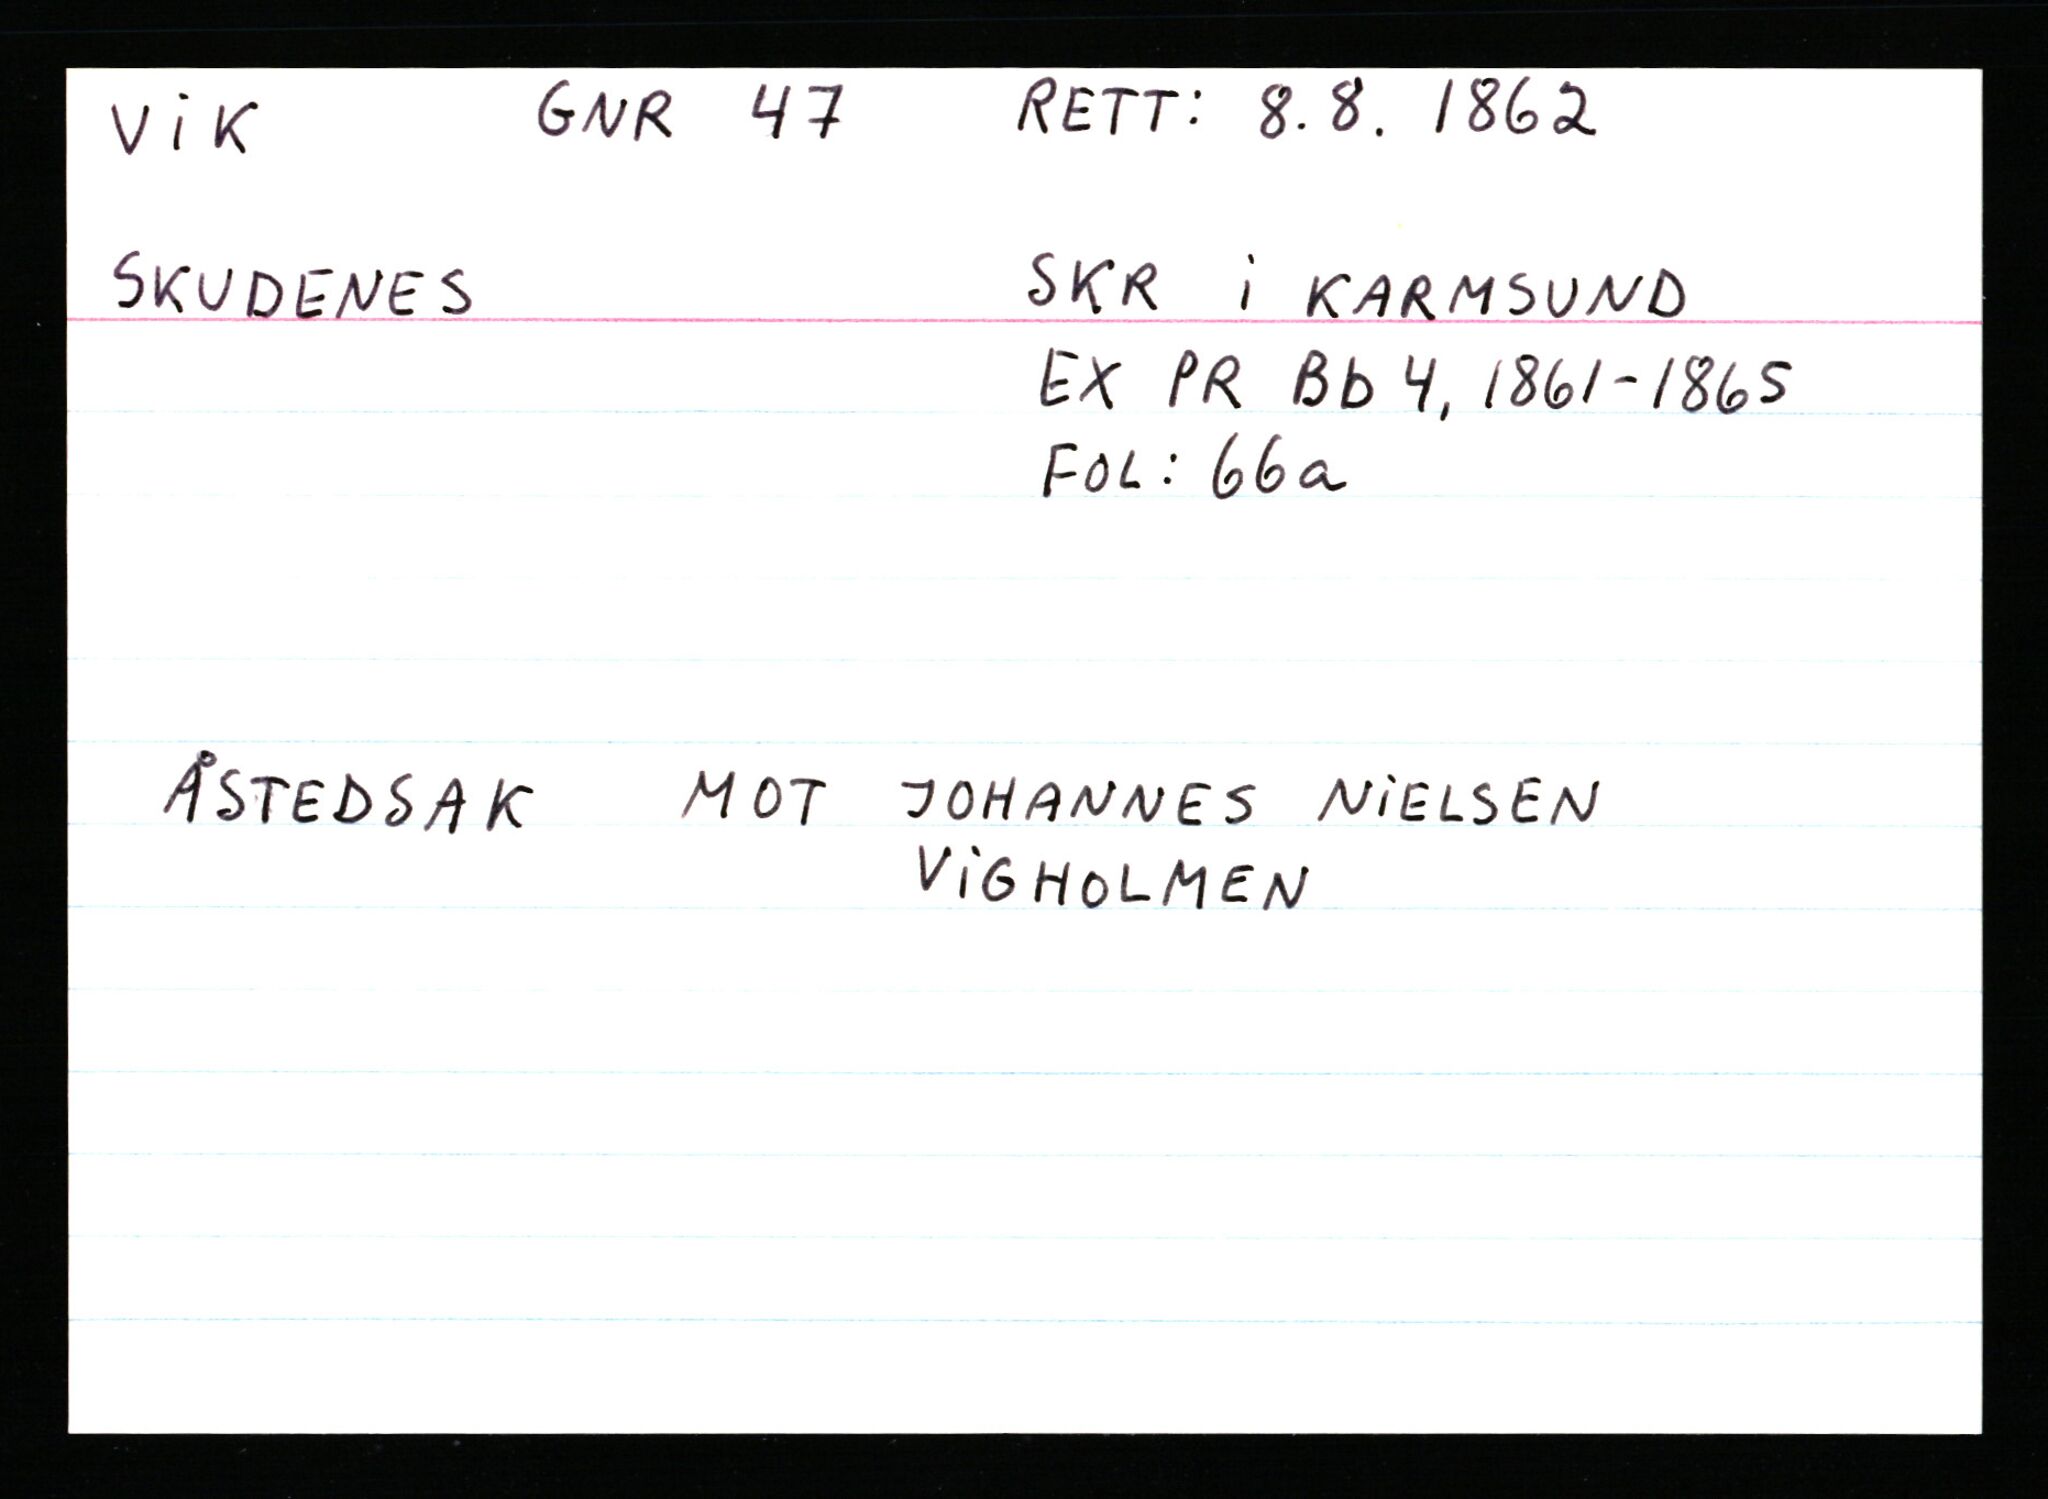 ViK GNR 47 RETT: 8.8. 1862
SKUDENES SKR i KARMSUND
EX PR Bb 4, 1861-1865
FOL: 66a
ÅSTEDSAK MOT JOHANNES NiELSEN
ViGHOLMEN